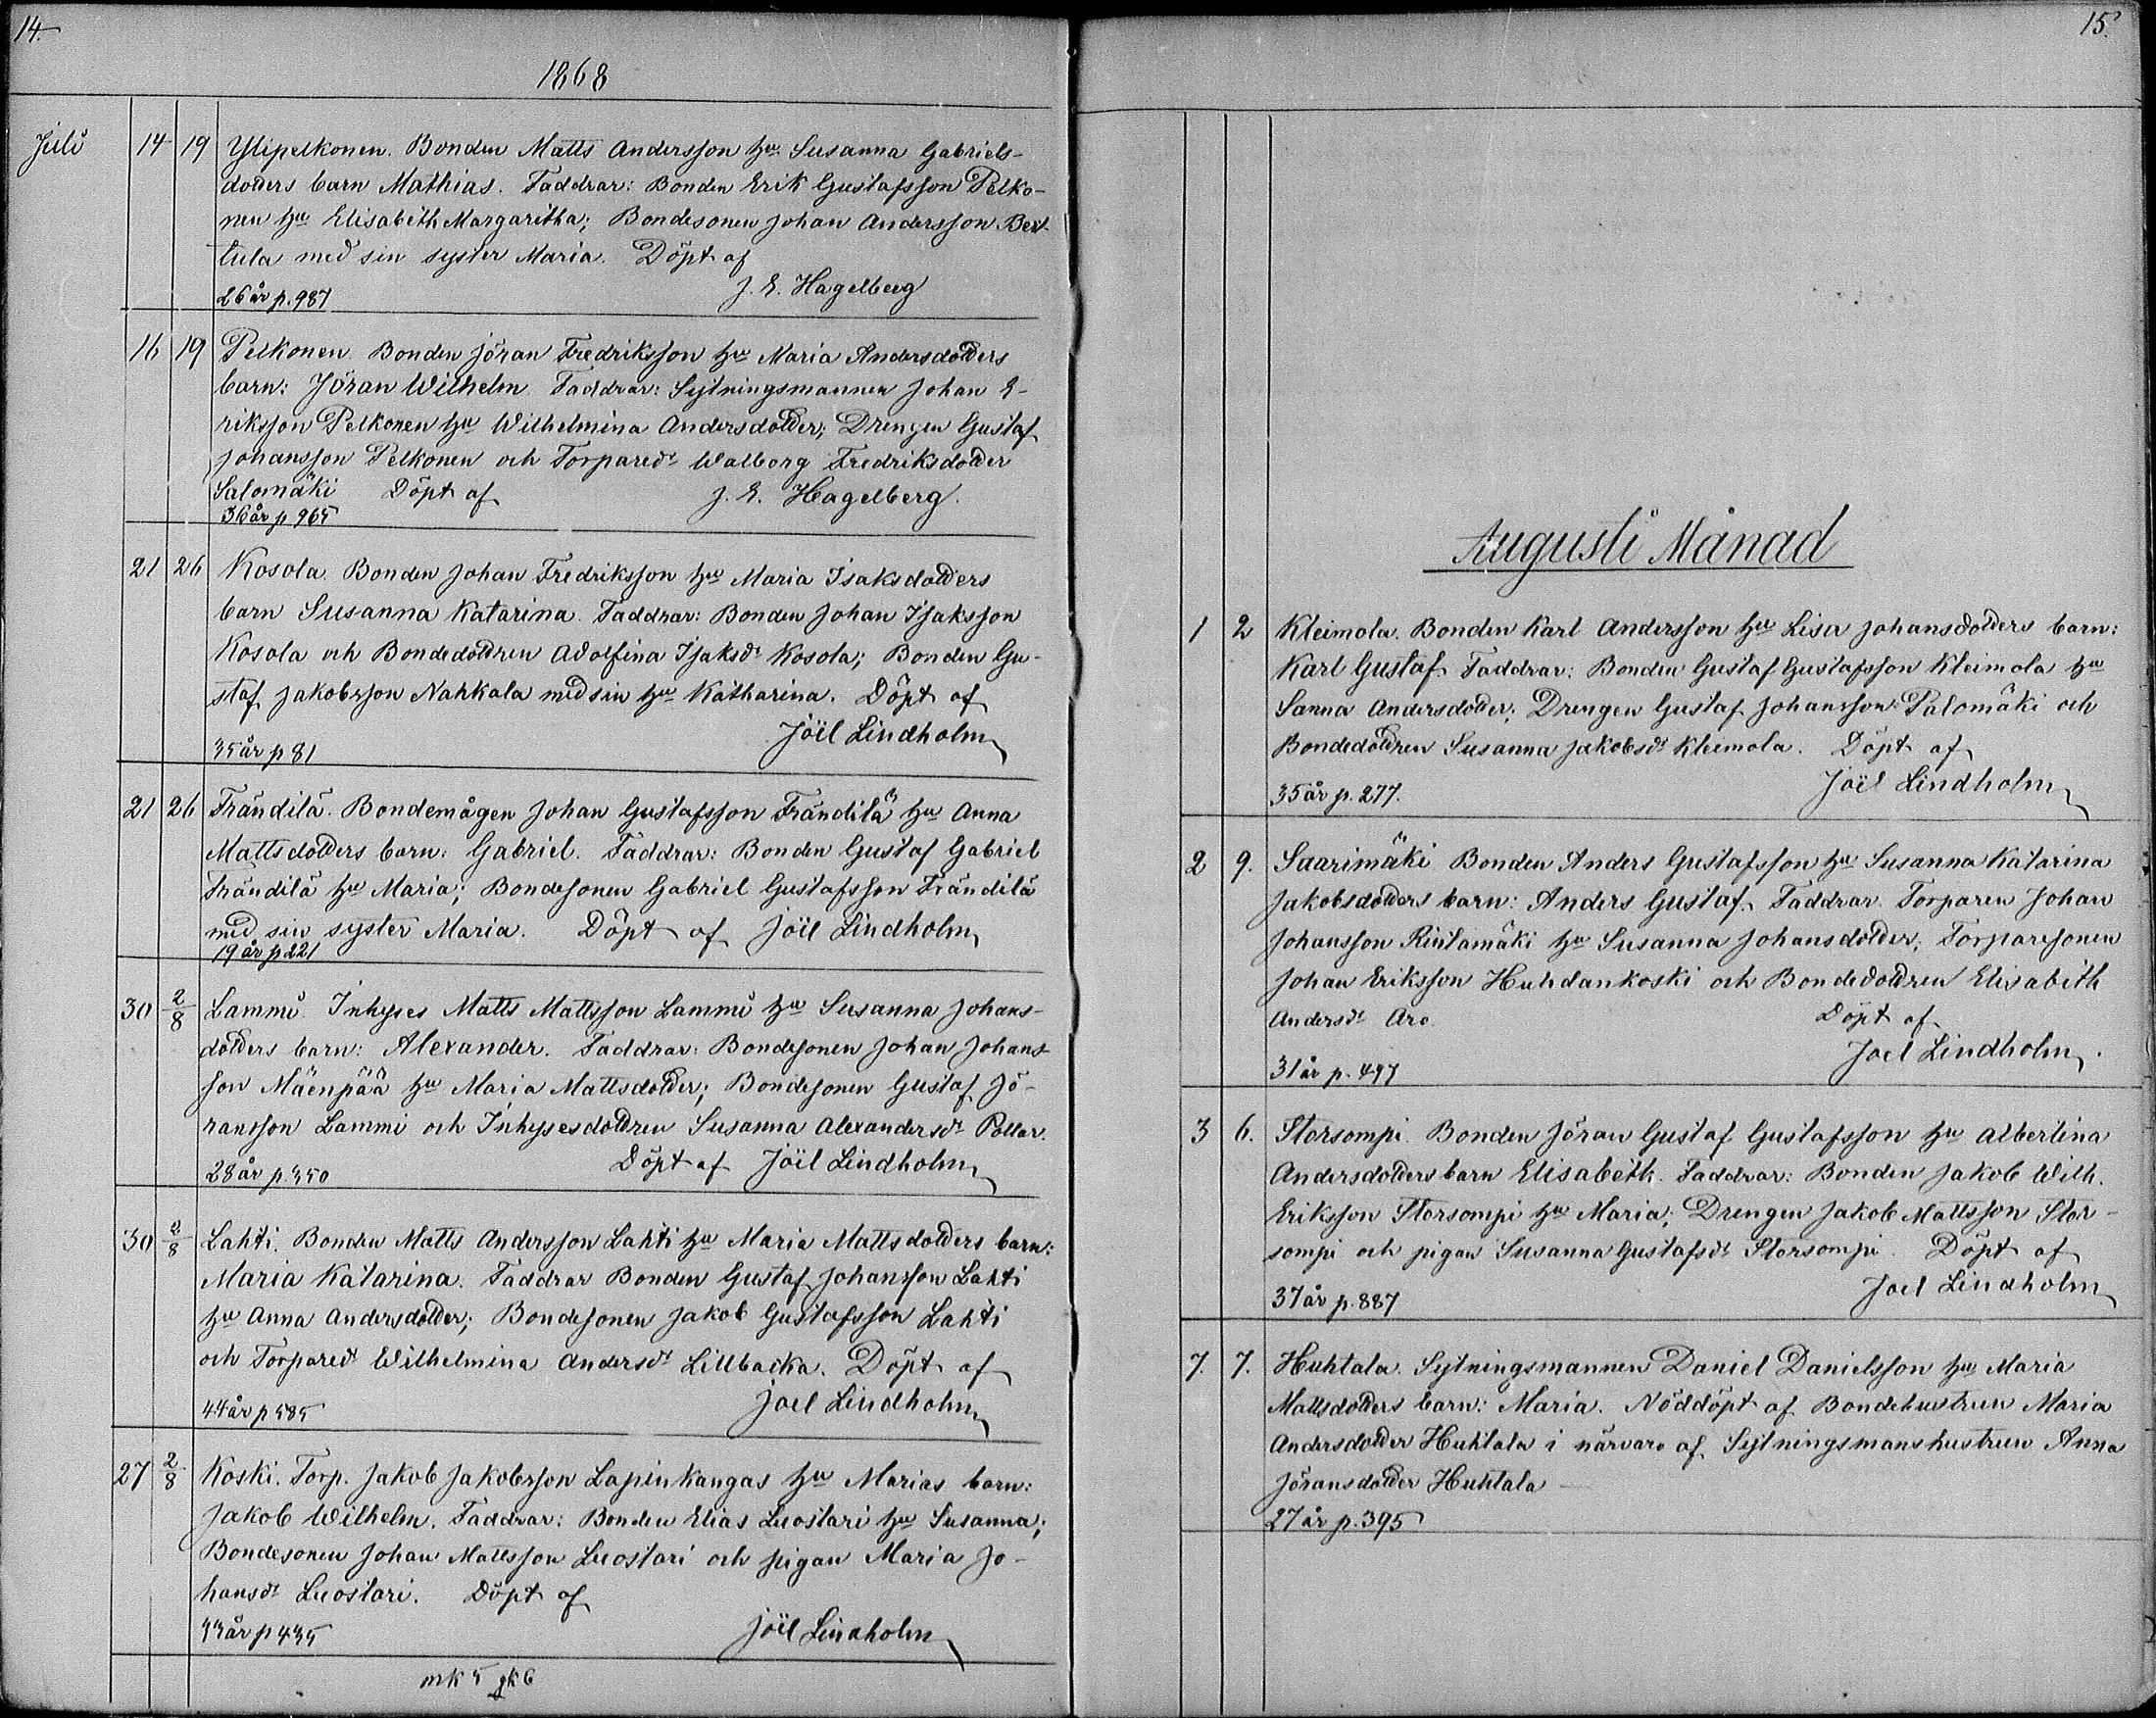 14.
1868
Juli 14 19 Ylipelkonen. Bonden Matts Andersson hu Susanna Gabriels-
dotters barn Mathias. Faddrar: Bonden Erik Gustafsson Pelko-
nen hu Elisabeth Margaritha; Bondesonen Johan Andersson Bert-
tula med sin syster Maria. Döpt af
J. E. Hagelberg
26 år p. 987
16 19 Pelkonen. Bonden Jöran Fredriksson hu Maria Andersdotters
barn: Jöran Wilhelm. Faddrar: Sytningsmannen Johan E-
riksson Pelkonen hu Wilhelmina Andersdotter; Drengen Gustaf
Johansson Pelkonen och Torparedr Walborg Fredriksdotter
Salomäki Döpt af J. E. Hagelberg.
36 år p 965
21 26 Kosola. Bonden Johan Fredriksson hu Maria Isaksdotters
barn Susanna Katarina. Faddrar: Bonden Johan Isaksson
Kosola och Bondedottren Adolfina Isaksdr Kosola; Bonden Gu-
staf Jakobsson Nahkala med sin hu Katharina. Döpt af
Joël Lindholm
35 år p 81
21 26 Frändilä. Bondemågen Johan Gustafsson Frändilä hu Anna
Mattsdotters barn: Gabriel. Faddrar: Bonden Gustaf Gabriel
Frändilä hu Maria; Bondesonen Gabriel Gustafsson Frändilä
med sin syster Maria. Döpt af Joël Lindholm
19 år p 221
30 2/8 Lammi. Inhyses Matts Mattsson Lammi hu Susanna Johans-
dotters barn: Alexander. Faddrar: Bondesonen Johan Johans-
son Mäenpää hu Maria Mattsdotter; Bondesonen Gustaf Jö-
ransson Lammi och Inhysesdottren Susanna Alexandersdr Pollar.
28 år p 350 Döpt af Joël Lindholm
30 2/8 Lahti. Bonden Matts Andersson Lahti hu Maria Mattsdotters barn:
Maria Katarina. Faddrar Bonden Gustaf Johansson Lahti
hu Anna Andersdotter; Bondesonen Jakob Gustafsson Lahti
och Torparedr Wilhelmina Andersdr Lillbacka. Döpt af
44 år p 585 Joel Lindholm
27 2/8 Koski. Torp. Jakob Jakobsson Lapinkangas hu Marias barn:
Jakob Wilhelm. Faddrar: Bonden Elias Luostari hu Susanna;
Bondesonen Johan Mattsson Luostari och pigan Maria Jo-
hansdr Luostari. Döpt af
33 år p 435 Joël Lindholm
mk 5 qk 6
15.
Augusti Månad
1 2 Kleimola. Bonden Karl Andersson hu Lisa Johansdotters barn:
Karl Gustaf. Faddrar: Bonden Gustaf Gustafsson Kleimola hu
Sanna Andersdotter; Drengen Gustaf Johansson Palomäki och
Bondedottren Susanna Jakobsdr Kleimola. Döpt af
35 år p. 277. Joël Lindholm
2 9. Saarimäki Bonden Anders Gustafsson hu Susanna Katarina
Jakobsdotters barn: Anders Gustaf. Faddrar. Torparen Johan
Johansson Rintamäki hu Susanna Johansdotter; Torparesonen
Johan Eriksson Huhdankoski och Bondedottren Elisabeth
Andersdr Aro. Döpt af
31 år p. 497 Joel Lindholm.
3 6. Storsompi. Bonden Jöran Gustaf Gustafsson hu Albertina
Andersdotters barn Elisabeth. Faddrar: Bonden Jakob Wilh.
Eriksson Storsompi hu Maria; Drengen Jakob Mattsson Stor-
sompi och pigan Susanna Gustafsdr Storsompi. Döpt af
37 år p. 887 Joel Lindholm
7. 7. Huhtala. Sytningsmannen Daniel Danielsson hu Maria
Mattsdotters barn: Maria. Nöddöpt af Bondehustrun Maria
Andersdotter Huhtala i närvaro af Sytningsmanshustrun Anna
Jöransdotter Huhtala
27 år p. 395